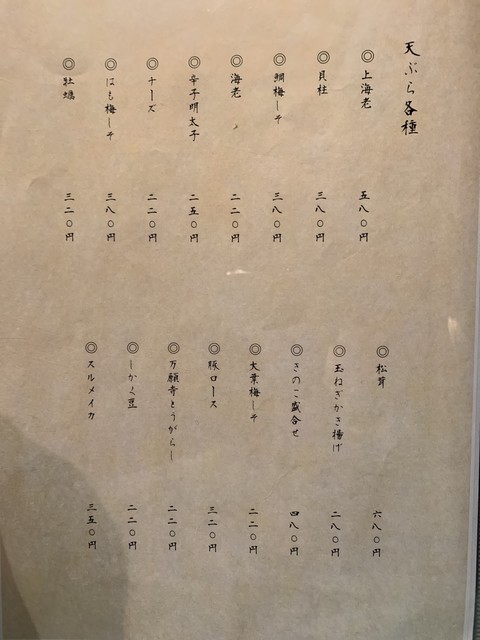 天ぷら各種
◎上海老 五八〇円
◎貝柱 三八〇円
◎鯛梅しそ 三八〇円
◎海老 二二〇円
◎辛子明太子 二五〇円
◎チーズ 二二〇円
◎はも梅しそ 三八〇円
◎牡蠣 三二〇円
◎松茸 六八〇円
◎玉ねぎかき揚げ 二八〇円
◎きのこ盛合せ 四八〇円
◎大葉梅しそ 二二〇円
◎豚ロース 三二〇円
◎万願寺とうがらし 二二〇円
◎しかく豆 二二〇円
◎スルメイカ 三五〇円